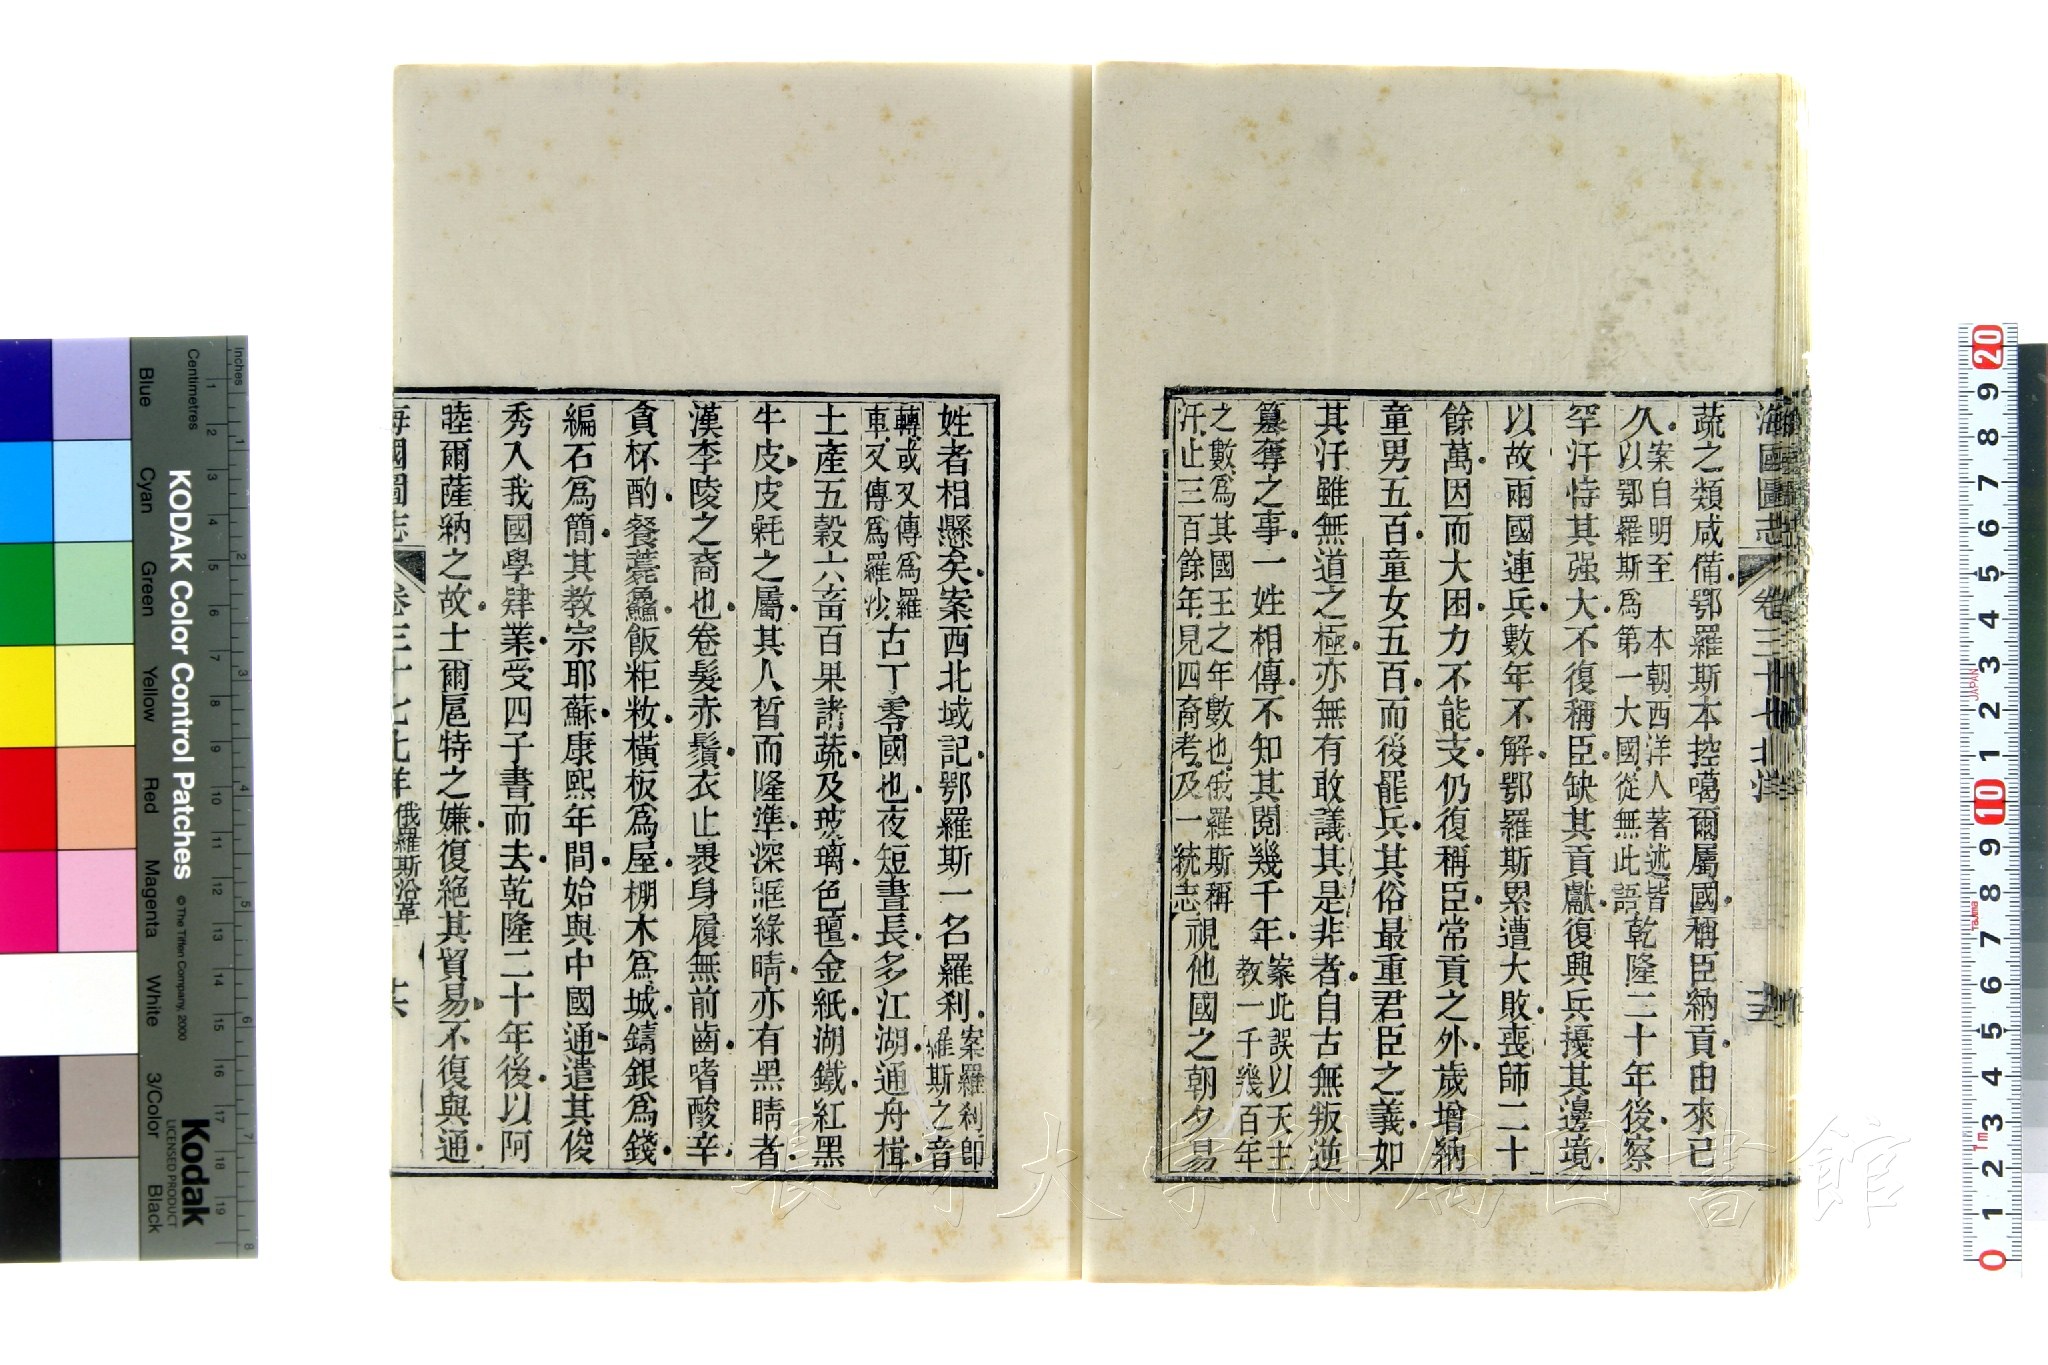 海國圖志 卷三十七 北洋
蔬之類咸備鄂羅斯本控噶爾屬國稱臣納貢由來已
久案自明至 本朝西洋人著述皆以鄂羅斯爲第一大國從無此語乾隆二十年後察
罕汗恃其强大不復稱臣缺其貢獻復興兵擾其邊境
以故兩國連兵數年不解鄂羅斯累遭大敗喪師二十
餘萬因而大困力不能支仍復稱臣常貢之外歲增納
童男五百童女五百而後罷兵其俗最重君臣之義如
其汗雖無道之極亦無有敢議其是非者自古無叛逆
簒奪之事一姓相傳不知其閱幾千年案此誤以天主教一千幾百年
之數爲其國王之年數也俄羅斯稱汗止三百餘年見四裔考及一統志視他國之朝夕易
姓者相懸矣案西北域記鄂羅斯一名羅刹案羅刹卽羅斯之音
轉或又傳爲羅車又傳爲羅沙古丁零國也夜短晝長多江湖通舟楫
土產五穀六畜百果諸蔬及玻璃色氊金紙湖鐵紅黑
牛皮皮毦之屬其人晳而隆準深眶綠睛亦有黑睛者
漢李陵之裔也卷髮赤鬚衣止裹身履無前齒嗜酸辛
貪杯酌餐薧鱻飯粔籹橫板爲屋棚木爲城鑄銀爲錢
編石爲簡其教宗耶蘇康熙年間始與中國通遣其俊
秀入我國學肄業受四子書而去乾隆二十年後以阿
睦爾薩納之故土爾扈特之嫌復絶其貿易不復與通
海國圖志 卷三十七 北洋 俄羅斯沿革
長崎大学附属図書館
KODAK Color Control Patches
© The Tiffen Company, 2000
Kodak
LICENSED PRODUCT
Inches
Centimetres
Blue
Cyan
Green
Yellow
Red
Magenta
White
3/Color
Black